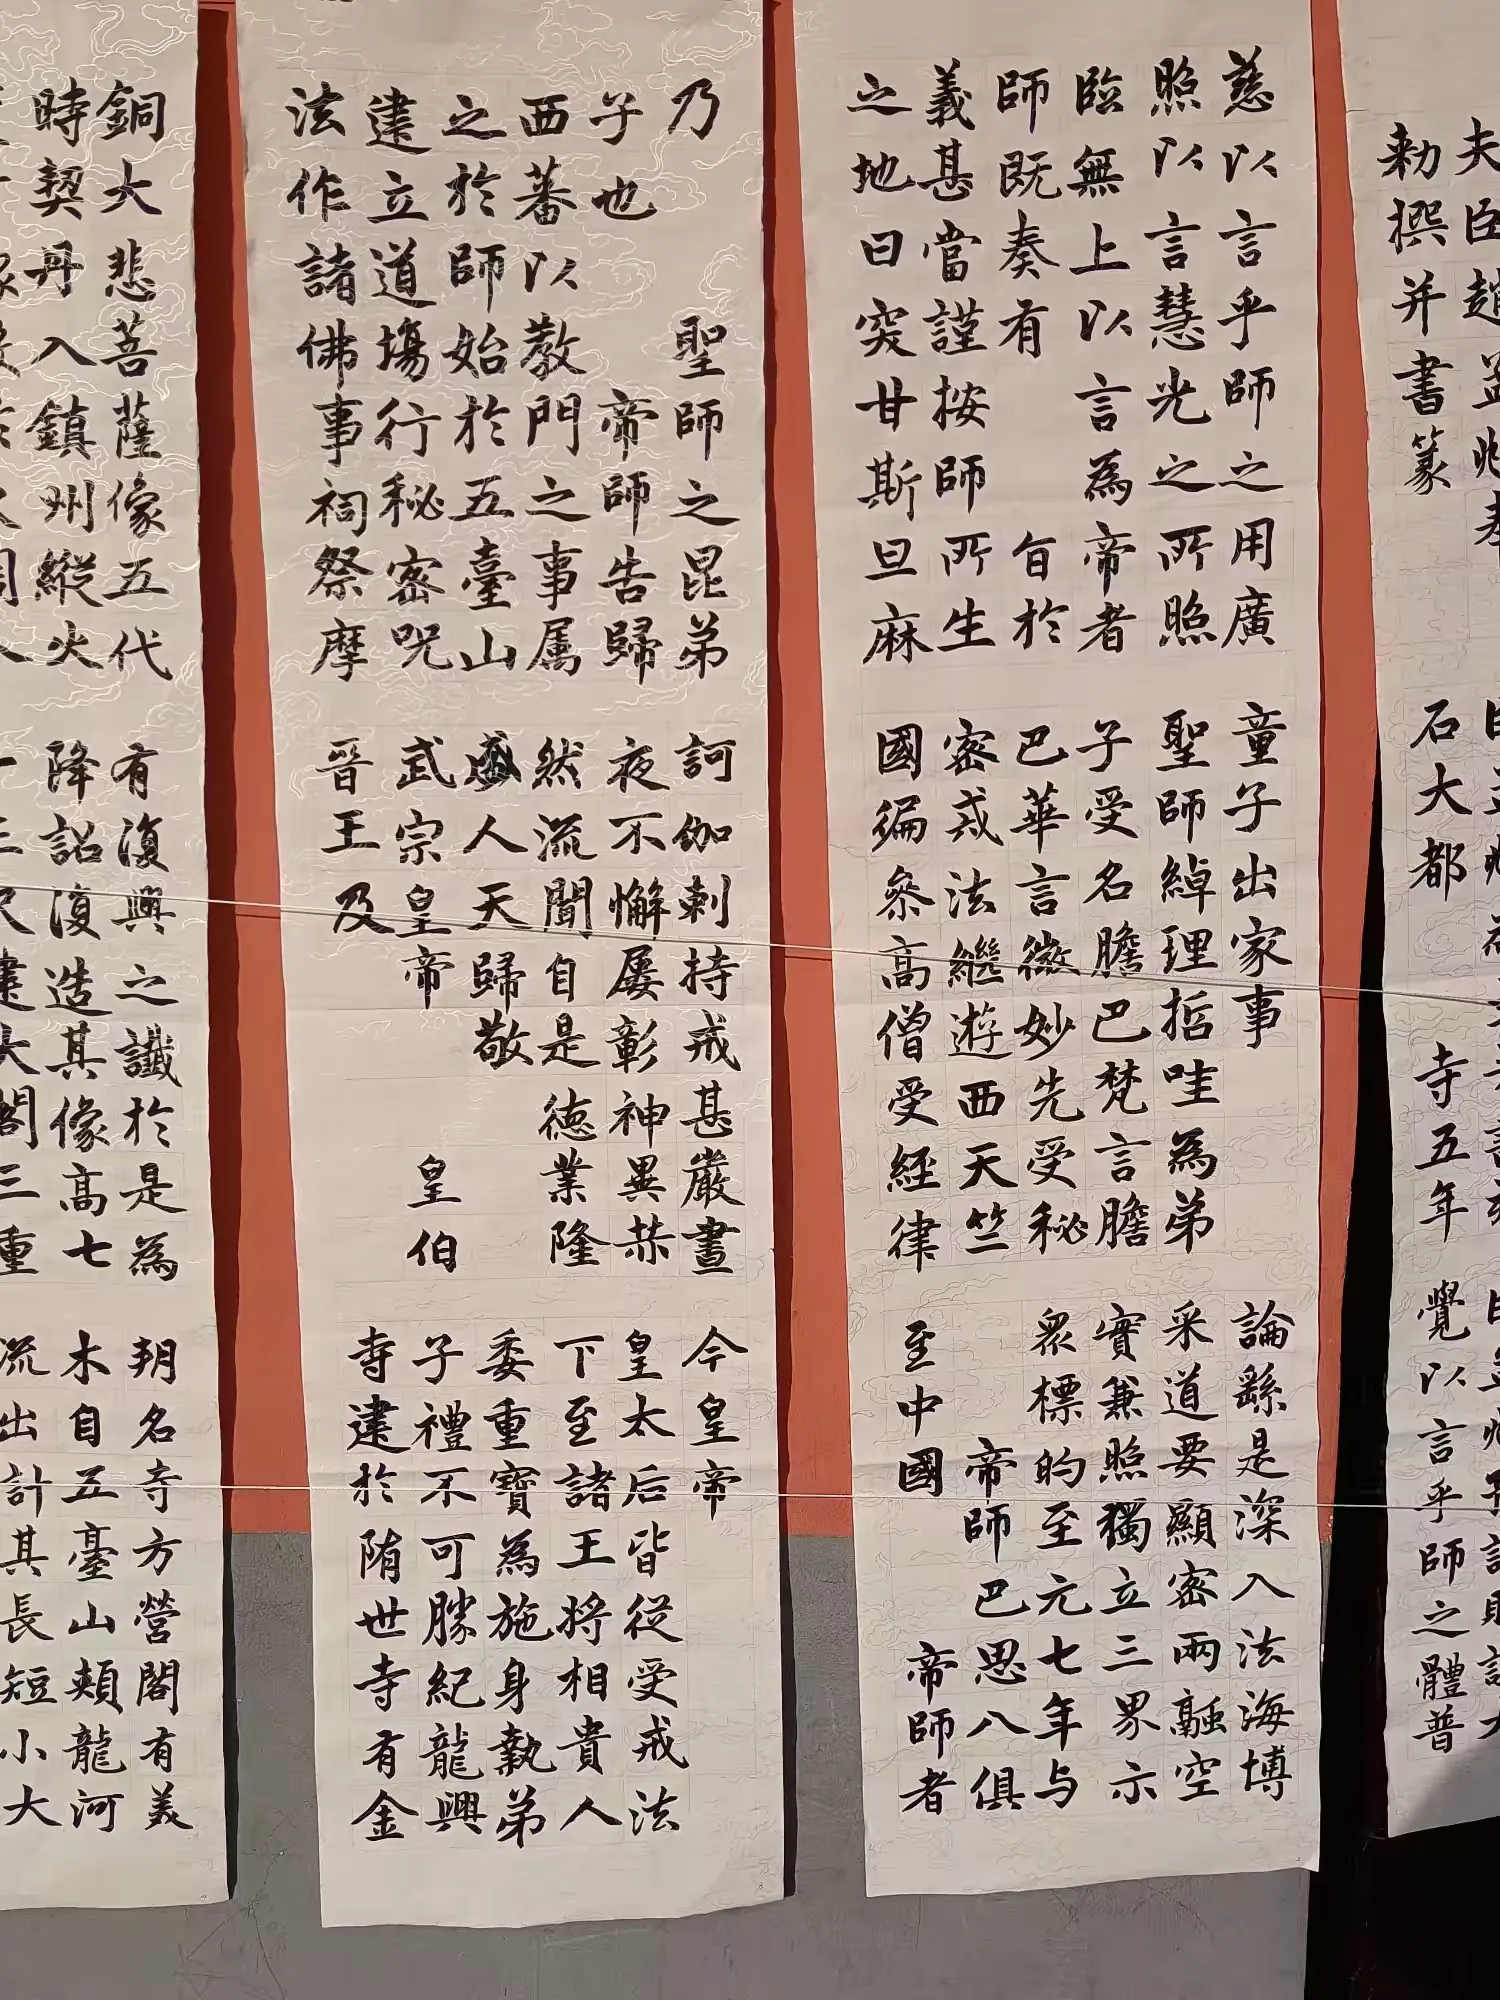 夫臣趙孟頫奉
勅撰并書篆
石大都 寺五年
臣孟頫預議賜謚大
覺以言乎師之體普
慈以言乎師之用廣
照以言慧光之所照
臨無上以言為帝者
師既奏有 旨於
義甚當謹按師所生
之地曰突甘斯旦麻
童子出家事
聖師綽理哲哇為弟
子受名膽巴梵言膽
巴華言微妙先受秘
密戒法繼遊西天竺
國徧參高僧受經律
論繇是深入法海博
采道要顯密兩融空
實兼照獨立三界示
眾標的至元七年与
帝師巴思八俱
至中國 帝師者
乃 聖師之昆弟
子也 帝師告歸
西蕃以教門之事属
之於師始於五臺山
建立道場行秘密呪
法作諸佛事祠祭摩
訶伽剌持戒甚嚴晝
夜不懈屢彰神異赫
然流聞自是德業隆
盛人天歸敬
武宗皇帝 皇伯
晉王及
今皇帝
皇太后皆從受戒法
下至諸王將相貴人
委重寶為施身執弟
子禮不可勝紀龍興
寺建於隋世寺有金
銅大悲菩薩像五代
時契丹入鎮州縱火
有復興之讖於是為
降詔復造其像高七
十三尺建大閣三重
朔名寺方營閣有美
木自五臺山頰龍河
流出計其長短小大